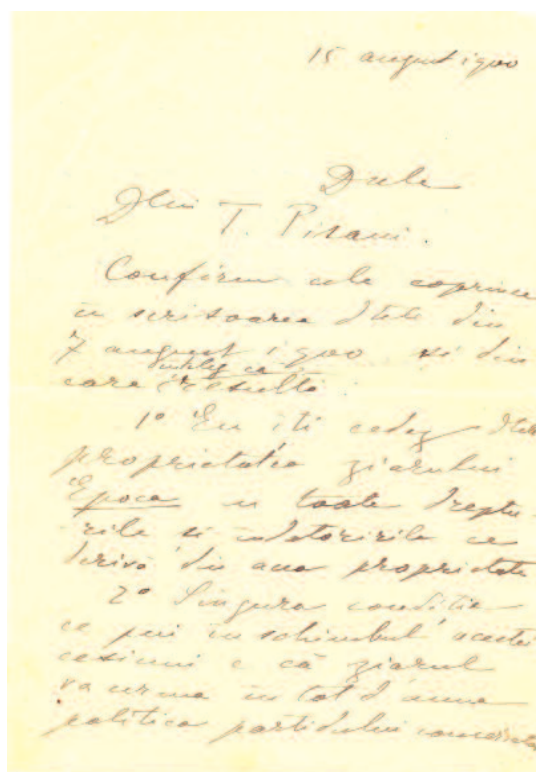 15 august 1900
Dale
Dlui T. Pisani.
Confirm cele coprinse
în scrisoarea Dtale din
7 august 1900 și din
înțeleg ca
care resultă:
1º Eu iti cedez Dtale
proprietatea ziarului
Epoca cu toate dreptu-
rile si indatoririle ce
derivă din acea proprietate
2º Singura conditie
ce pui in schimbul acestei
cesiuni e că ziarul
va urma in tot d'auna
politica partidului conservator